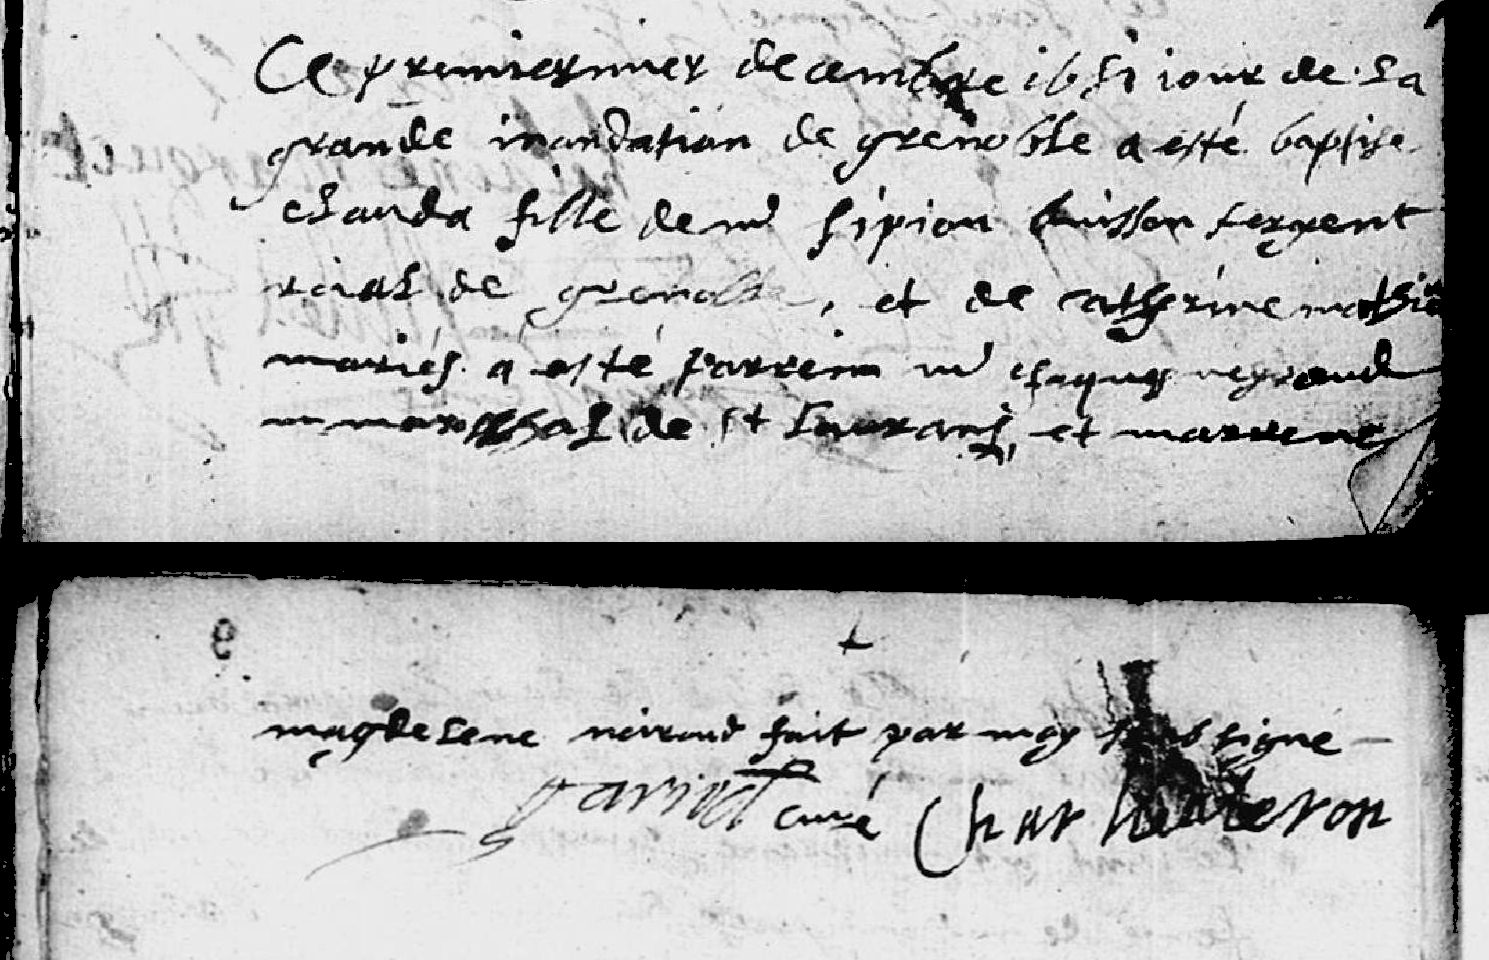 Ce premier decembre 1651 jour de la
grande inondation de grenoble a esté baptise
clauda fille de mr sipion buisson sergent
roial de grenoble, et de catherine mathie
mariés. a esté parrein mr
marechal de st laurans, et marrene
magdelene noiraud fait par moy soubsigné
curé Char